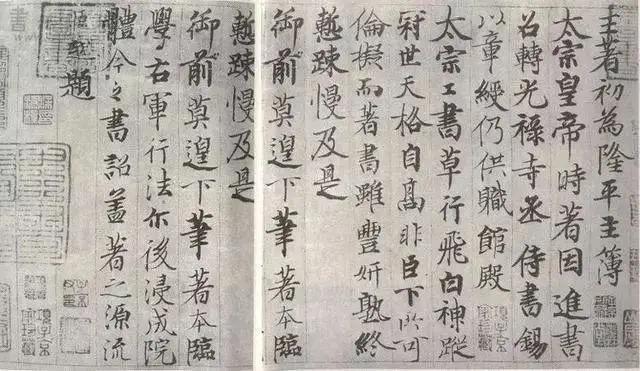 王著初為隆平主簿
太宗皇帝時著因進書
召轉光祿寺丞侍書錫
以章紱仍供職館殿
太宗工書草行飛白神蹤
冠世天格自高非臣下所可
倫擬而著書雖豐妍熟終
慙踈慢及是
御前莫遑下筆著本臨
慙踈慢及是
御前莫遑下筆著本臨
學右軍行法尔後浸成院
體今之書詔盖著之源流
越題